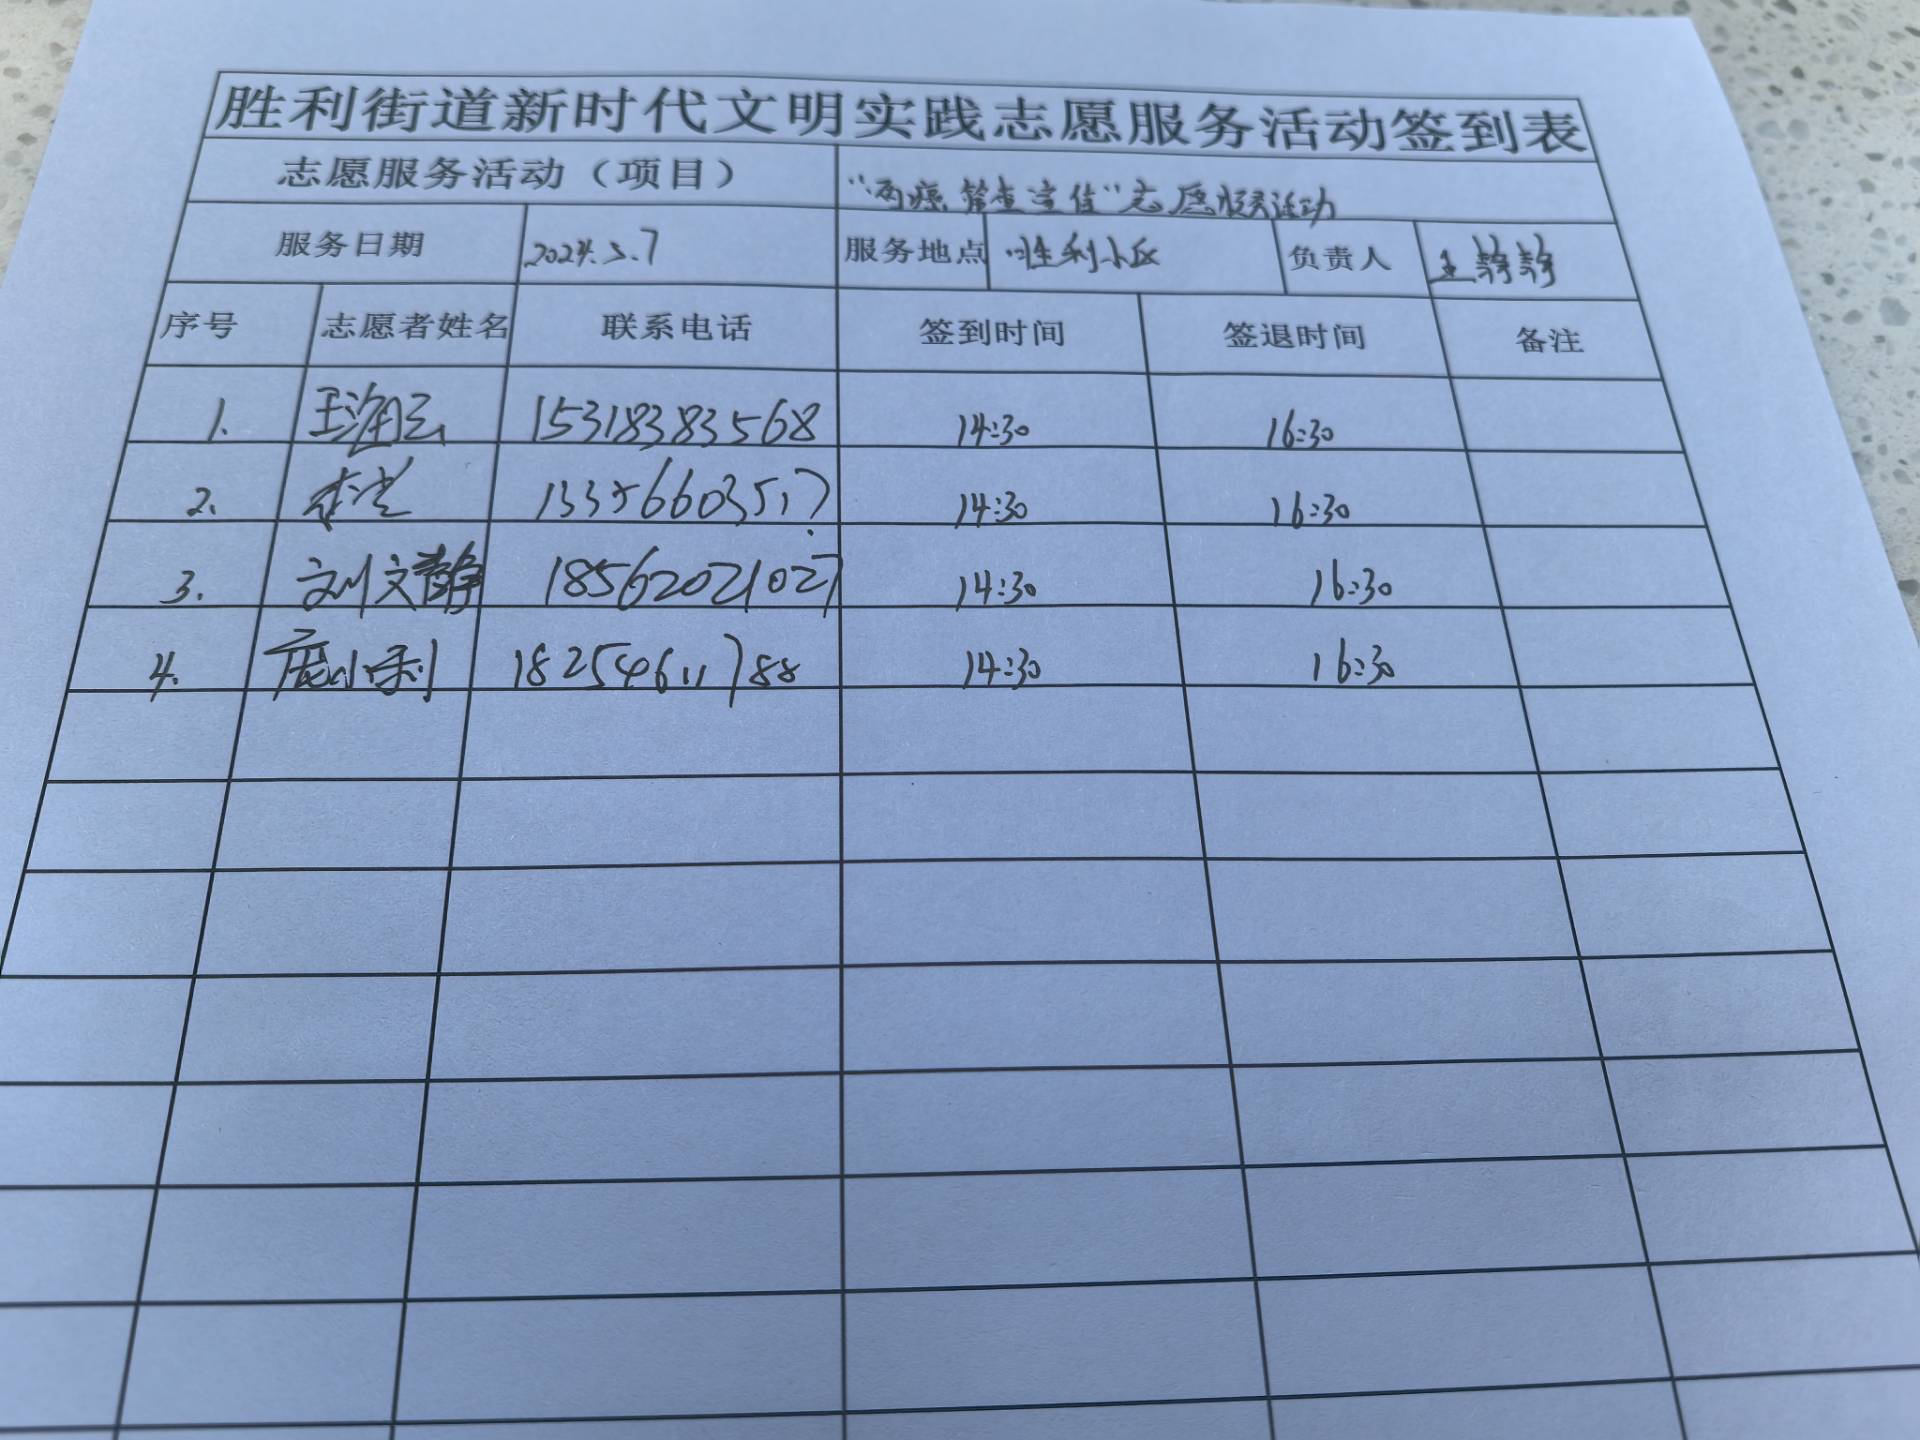 胜利街道新时代文明实践志愿服务活动签到表
志愿服务活动（项目） “两癌筛查宣传”志愿服务活动
服务日期 2024.5.7 服务地点 胜利小区 负责人 王静静
序号 志愿者姓名 联系电话 签到时间 签退时间 备注
1. 王海云 15318383568 14:30 16:30
2. 14:30 16:30
3. 刘文静 18562021027 14:30 16:30
4. 庞小利 18254611788 14:30 16:30